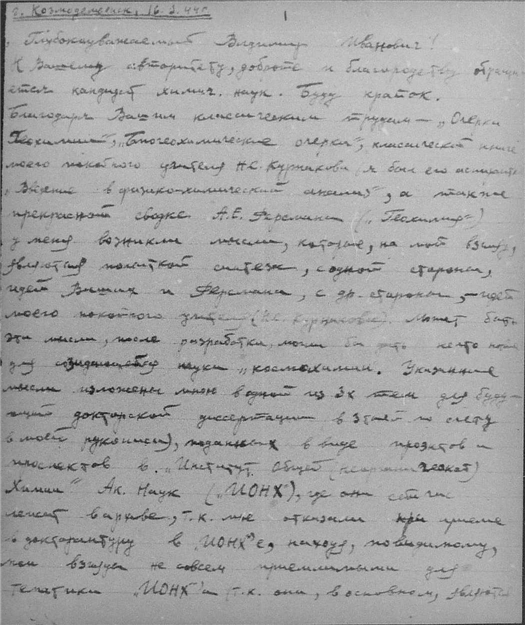 г. Козмодемьянск, 16.3.44г.
1
Глубокоуважаемый Владимир Иванович!
К Вашему авторитету, доброте и благородству обраща-
ется кандидат химич. наук. Буду краток.
Благодаря Вашим классическим трудам – „Очерки
Геохимии", „Биогеохимические очерки", классической книге
моего покойного учителя Н.С. Курнакова (я был его аспирантом)
„Введение в физико-химический анализ", а также
прекрасной сводке А.Е. Ферсмана („Геохимия")
у меня возникли мысли, которые, на мой взгляд,
являются попыткой синтеза, с одной стороны,
идей Ваших и Ферсмана, с др. стороны, – идей
моего покойного учителя (Н.С. Курнакова). Может быть
эти мысли, после разработки, могли бы дать нечто новое
для создающейся науки „космохимии. Указанные
мысли изложены мною в одной из 3х тем для буду-
щей докторской диссертации в 3тей по счету
в моей рукописи), поданных в виде проектов и
проспектов в „Институт Общей (неорганической)
Химии" Ак. Наук („ИОНХ"), где они сейчас
лежат в архиве, т.к. мне отказали при приеме
в докторантуру в „ИОНХ"е, находя, повидимому,
мои взгляды не совсем приемлемыми для
тематики „ИОНХ"а (т.к. они, в основном, являются